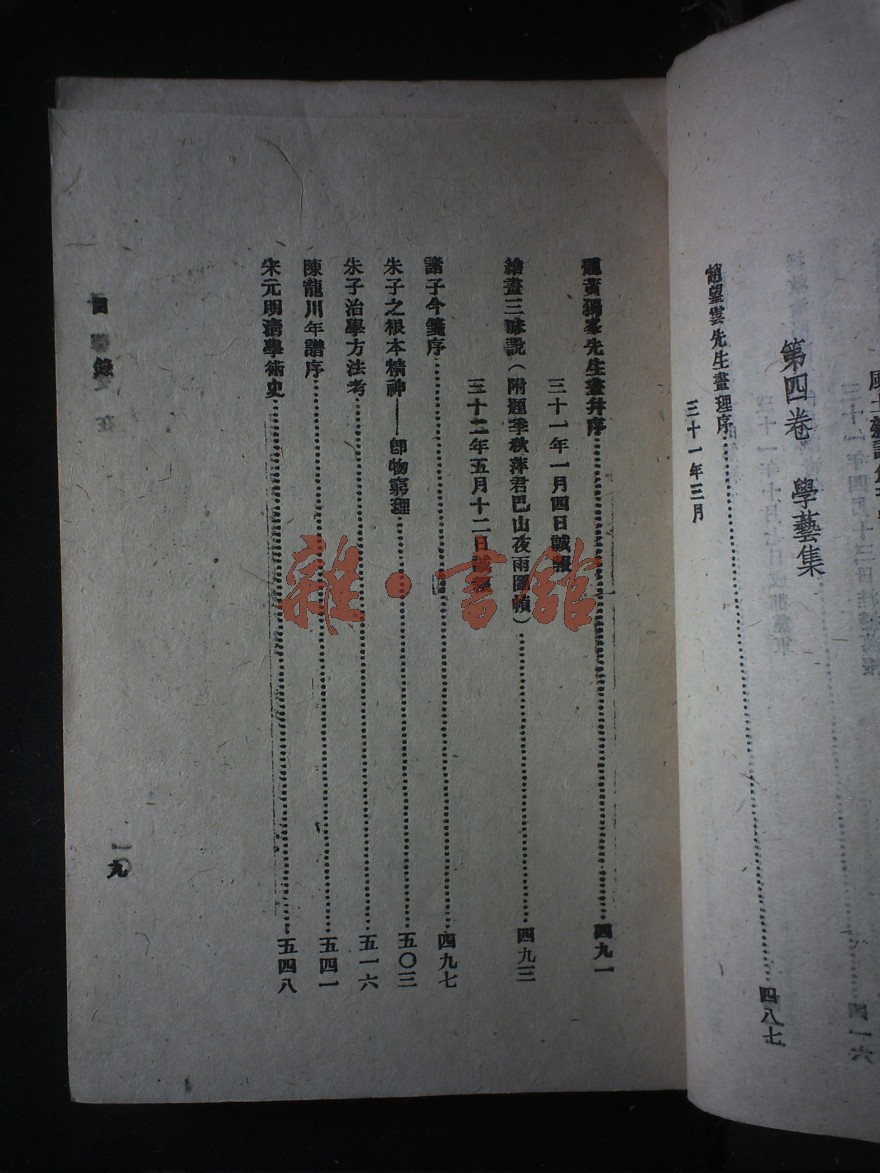 第四卷　學藝集
趙望雲先生畫理序……四八七
三十一年三月
題黃獨峯先生畫并序……四九一
三十一年一月四日誠報
繪畫三昧說（附題季秋萍君巴山夜雨圖幀）……四九三
三十二年五月十二日誠報
諸子今箋序……四九七
朱子之根本精神——卽物窮理……五〇三
朱子治學方法考……五一六
陳龍川年譜序……五四一
宋元明清學術史……五四八
目錄
一九
雜·書館